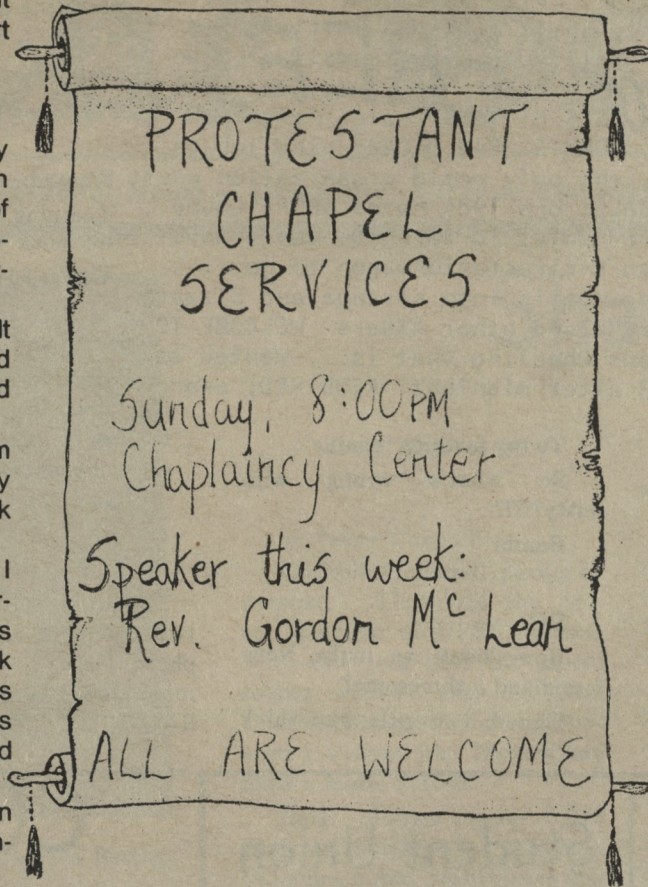 PROTESTANT
CHAPEL
SERVICES
Sunday, 8:00PM
Chaplaincy Center
Speaker this week:
Rev. Gordon Mc Lean
ALL ARE WELCOME